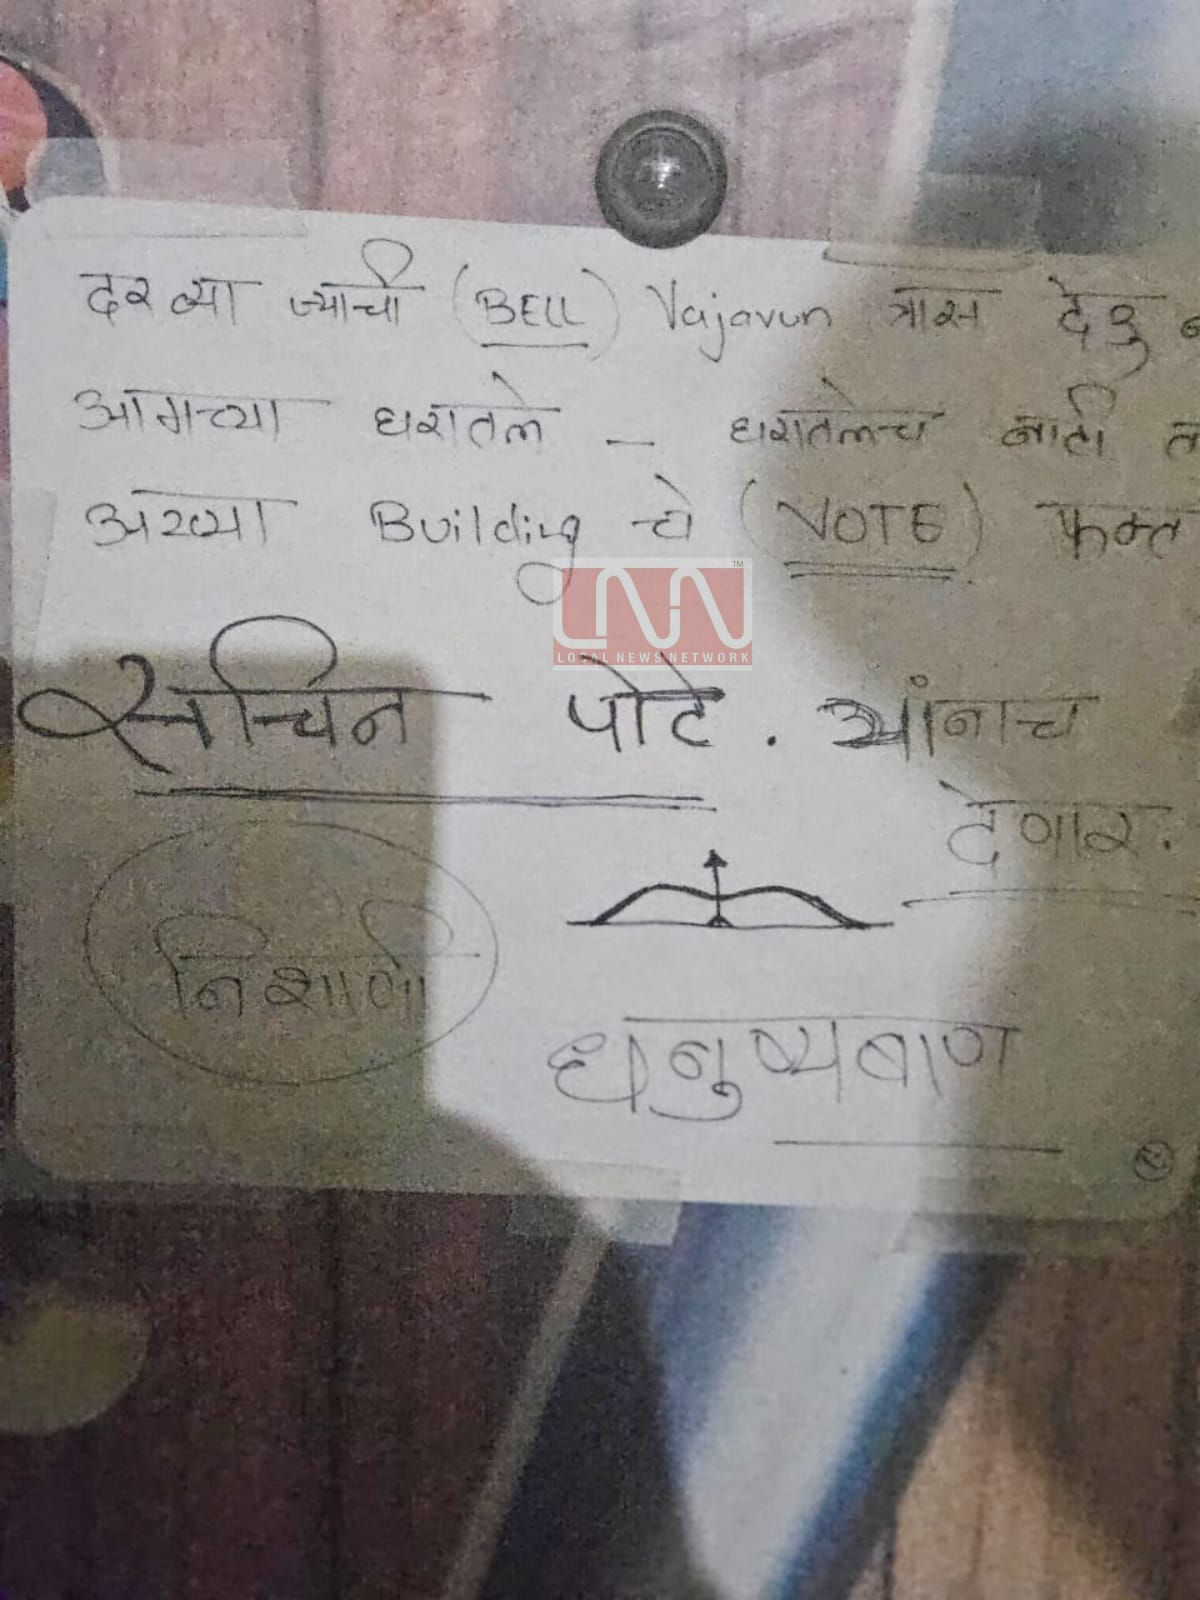 दरव्या ज्याची (BELL) Vajavun त्रास देवु
आमच्या घरातले - घरातलेच नाही
अख्या Building चे (VOTE) फक्त
LNN
TM
LOCAL NEWS NETWORK
सचिन पोटे. यांनाच
देणार.
निशाणी
धनुष्यबाण